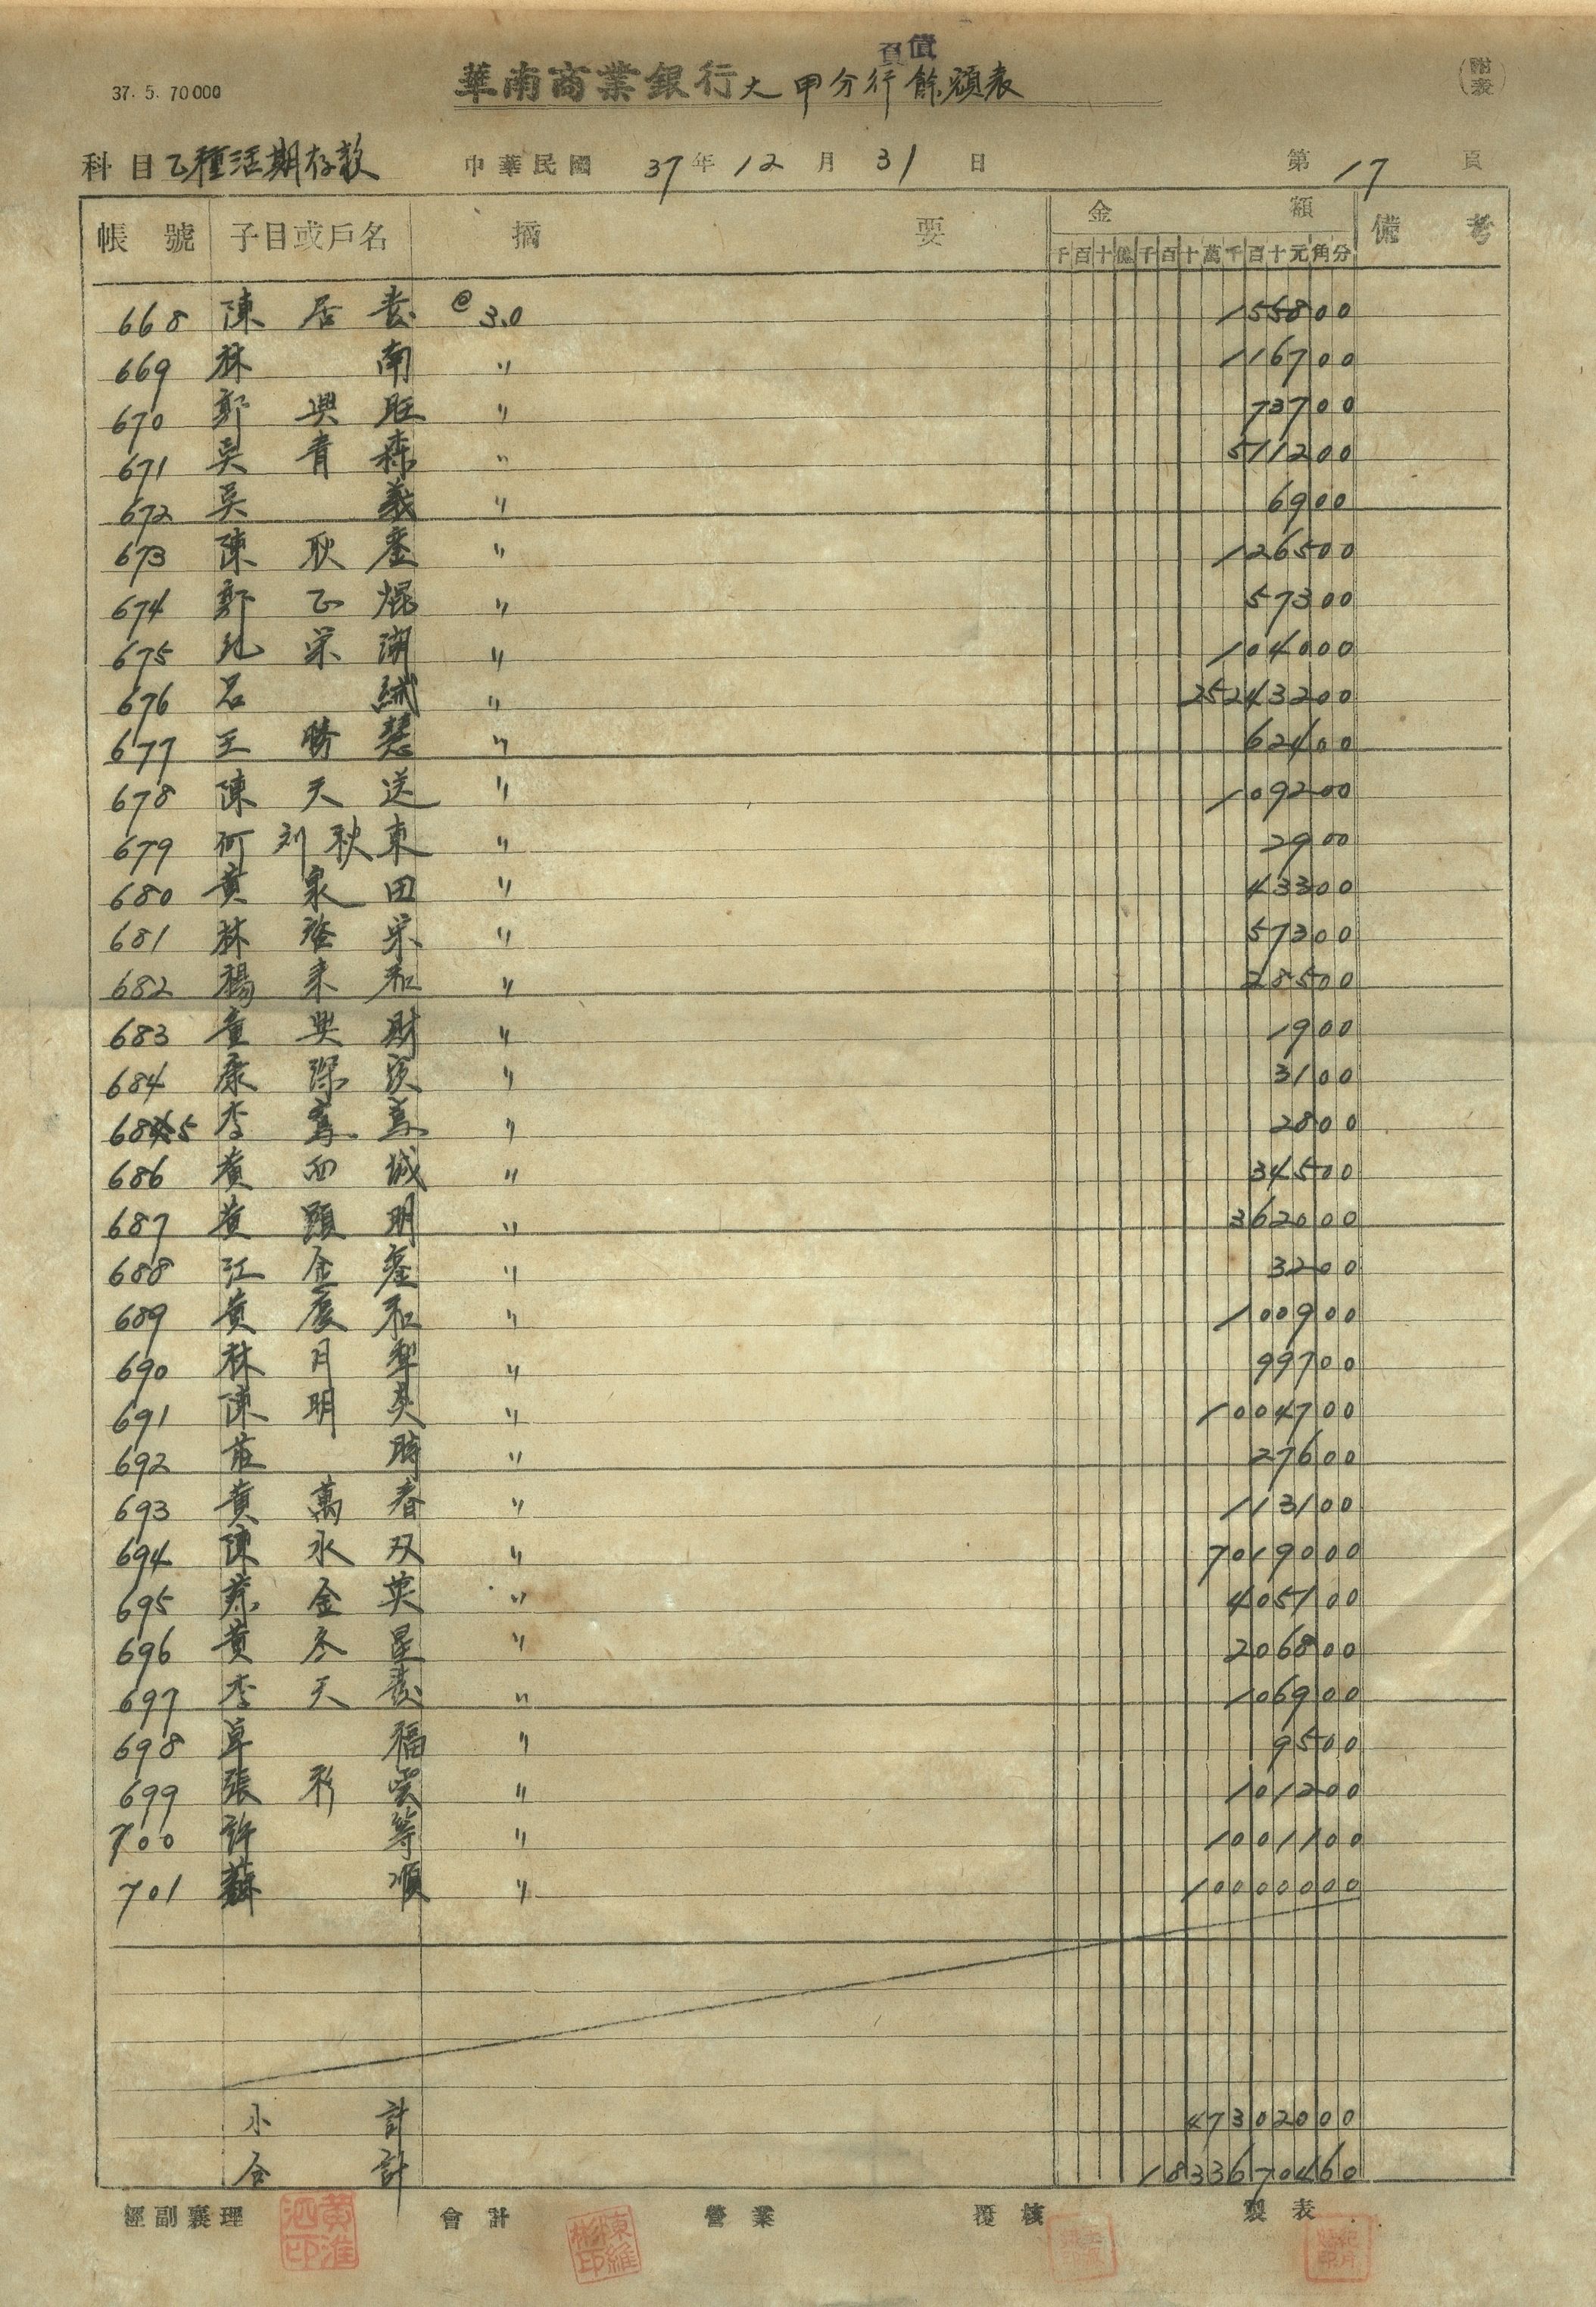 負債
37. 5. 70000 華南商業銀行大甲分行餘額表 (附表)
科目 乙種活期存款 中華民國 37 年 12 月 31 日 第 17 頁
帳號 子目或戶名 摘要 金額 備考
千百十億千百十萬千百十元角分
668 陳居 @ 3.0 155800
669 林南 〃 116700
670 郭興旺 〃 73700
671 吳青森 〃 511200
672 吳義 〃 6900
673 陳耿 〃 126500
674 郭乙焜 〃 57300
675 栄湖 〃 104000
676 呂絨 〃 25243200
677 王勝慧 〃 62400
678 陳天送 〃 109200
679 何刘秋東 〃 2900
680 黄泉田 〃 43300
681 林啓栄 〃 57300
682 楊来和 〃 28500
683 童興財 〃 1900
684 康深 〃 3100
685 李 〃 2800
686 黄西城 〃 34500
687 黄顕明 〃 362000
688 江金 〃 3200
689 黄慶和 〃 100900
690 林月 〃 99700
691 陳明 〃 1004700
692 莊時 〃 27600
693 黄萬春 〃 113100
694 陳永双 〃 7019000
695 蔡金英 〃 405100
696 黄冬星 〃 206800
697 李天 〃 106900
698 卓福 〃 9500
699 張彩雲 〃 101200
700 許等 〃 1001100
701 蘇順 〃 10000000
小計 47302000
合計 1833670460
經副襄理 會計 營業 覆核 製表
黃淮泗印 陳維彬印